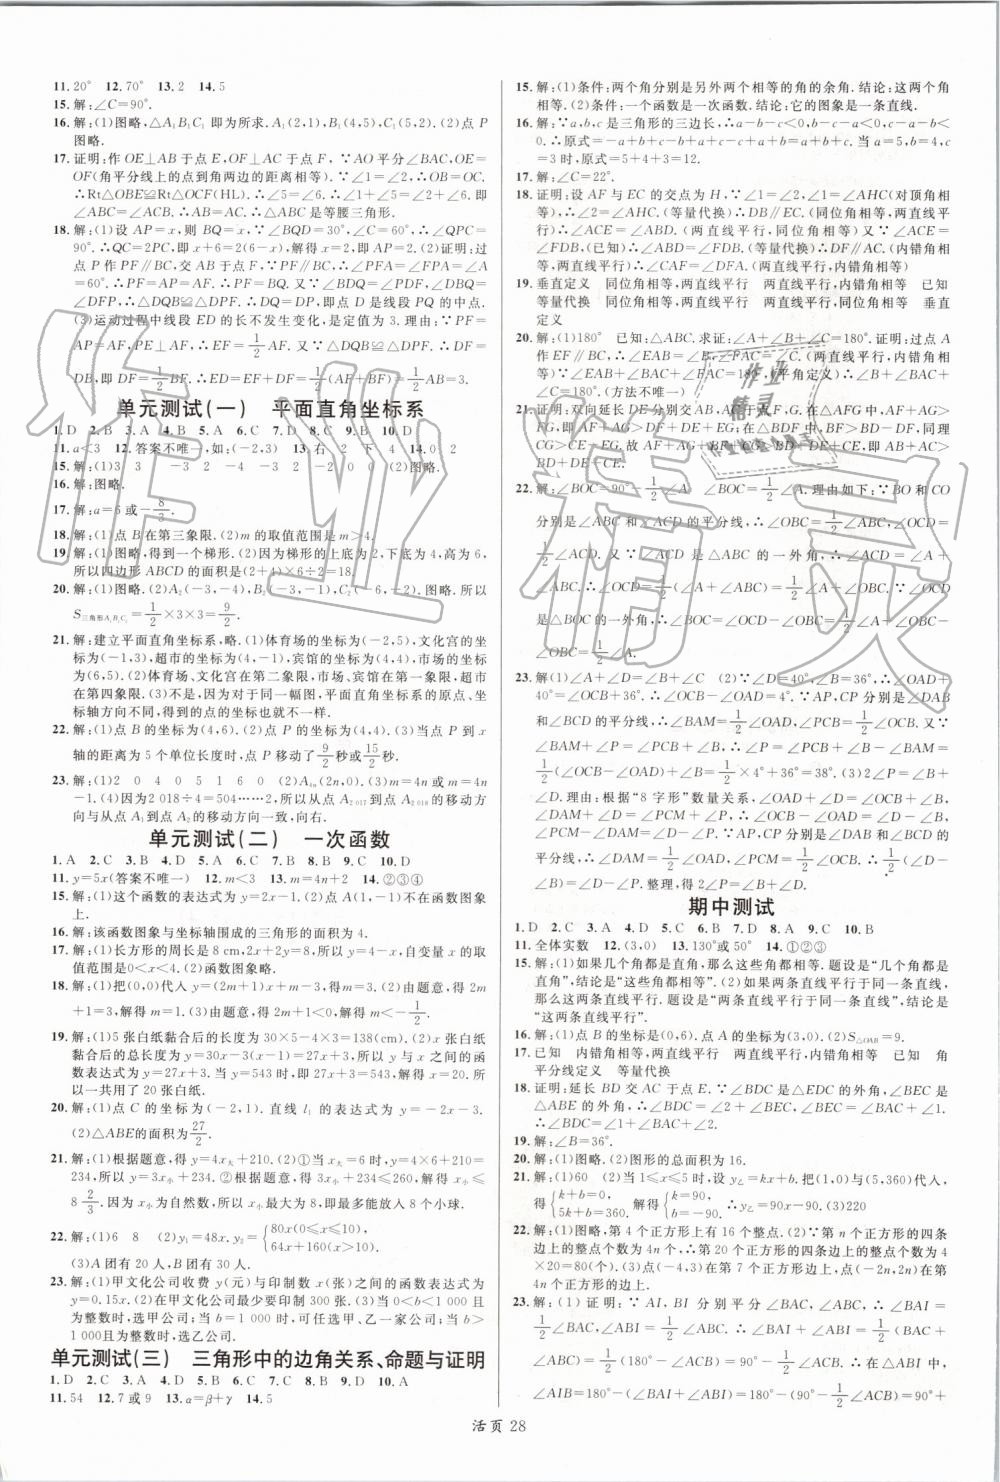 11. 20°　12. 70°　13. 2　14. 5
15. 解:∠C=90°.
16. 解:(1)图略,△A₁B₁C₁ 即为所求. A₁(2,1),B₁(4,5),C₁(5,2). (2)点 P
图略.
17. 证明:作 OE⊥AB 于点 E,OF⊥AC 于点 F,∵AO 平分∠BAC,OE=
OF(角平分线上的点到角两边的距离相等). ∴∠1=∠2,OB=OC.
∴Rt△OBE≌Rt△OCF(HL). ∴∠5=∠6. ∴∠1+∠5=∠2+∠6. 即
∠ABC=∠ACB. ∴AB=AC. ∴△ABC 是等腰三角形.
18. 解:(1)设 AP=x,则 BQ=x,∵∠BQD=30°,∠C=60°,∴∠QPC=
90°. ∴QC=2PC,即 x+6=2(6-x),解得 x=2,即 AP=2. (2)证明:过
点 P 作 PF∥BC,交 AB 于点 F,∵PF∥BC,∴∠PFA=∠FPA=∠A
=60°. ∴PF=AP=AF. ∴PF=BQ. 又∵∠BDQ=∠PDF,∠DBQ=
∠DFP,∴△DQB≌△DPF. ∴DQ=DP,即点 D 是线段 PQ 的中点.
(3)运动过程中线段 ED 的长不发生变化,是定值为 3. 理由:∵PF=
AP=AF,PE⊥AF,∴EF=1/2AF. 又∵△DQB≌△DPF,∴DF=
DB,即 DF=1/2BF. ∴ED=EF+DF=1/2(AF+BF)=1/2AB=3.
单元测试(一)　平面直角坐标系
1. D　2. B　3. A　4. B　5. A　6. C　7. D　8. C　9. C　10. D
11. a<3　12. 答案不唯一,如:(-2,3)　13. 右　2　下　4　14. 0　2
15. 解:(1)3　3　-3　-2　-4　-2　0　(2)图略.
16. 解:图略.
17. 解:a=6 或-8/3.
18. 解:(1)点 B 在第三象限. (2)m 的取值范围是 m>4.
19. 解:(1)图略,得到一个梯形. (2)因为梯形的上底为 2,下底为 4,高为 6,
所以四边形 ABCD 的面积是(2+4)×6÷2=18.
20. 解:(1)图略. (2)A₂(-3,-2),B₂(-3,-6,-2). (3)图略. 所以
S三角形A₁B₁C₁=1/2×3×3=9/2.
21. 解:建立平面直角坐标系,略. (1)体育场的坐标为(-2,5),文化宫的坐标
为(-1,3),超市的坐标为(4,-1),宾馆的坐标为(4,4),市场的坐标为
(6,5). (2)体育场、文化宫在第二象限,市场、宾馆在第一象限,超市
在第四象限. (3)不一样,因为对于同一幅图,平面直角坐标系的原点、坐
标轴方向不同,得到的点的坐标也就不一样.
22. 解:(1)点 B 的坐标为(4,6). (2)点 P 的坐标为(4,4). (3)当点 P 到 x
轴的距离为 5 个单位长度时,点 P 移动了 9/2 秒或 15/2 秒.
23. 解:(1)2　0　4　0　5　1　6　0　(2)A₄ₙ(2n,0). (3)m=4n 或 m=4n
-1. (4)因为 2 018÷4=504……2,所以从点 A₂₀₁₇ 到点 A₂₀₁₈ 的移动方
向与从点 A₁ 到点 A₂ 的移动方向一致,向右.
单元测试(二)　一次函数
1. A　2. C　3. B　4. D　5. A　6. C　7. B　8. B　9. C　10. D
11. y=5x(答案不唯一)　12. m<3　13. m=4n+2　14. ②③④
15. 解:(1)这个函数的表达式为 y=-2x-1. (2)点 A 不在函数图象
上.
16. 解:该函数图象与坐标轴围成的三角形的面积为 4.
17. 解:(1)长方形的周长是 8 cm,2x+2y=8,所以 y=4-x,自变量 x 的取
值范围是 0<x<4. (2)函数图象略.
18. 解:(1)把(0,0)代入 y=(2m+1)x+m-3,得 m=3. (2)由题意,得 2m
+1=3,解得 m=1. (3)由题意,得 2m+1<0,解得 m<-1/2.
19. 解:(1)5 张白纸黏合后的长度为 30×5-4×3=138(cm). (2)x 张白纸
黏合后的总长度为 y=30x-3(x-1)=27x+3,所以 y 与 x 之间的函数
表达式为 y=27x+3. 当 y=543 时,即 27x+3=543,解得 x=20. 所
以一共用了 20 张白纸.
20. 解:(1)点 C 的坐标为(-2,1). 直线 l₁ 的表达式为 y=-2x-3.
(2)△ABE的面积为27/2.
21. 解:(1)根据题意,得 y=4x大+210. (2)①当 x大=6 时,y=4×6+210=
234,所以 y=3x小+234. ②根据题意,得 3x小+234≤260,解得 x小≤
8 2/3. 因为 x小 为自然数,所以 x小 最大为 8,即最多能放入 8 个小球.
22. 解:(1)6　8　(2)y₁=48x. y₂={80x(0≤x≤10),
64x+160(x>10).
(3)A 团有 20 人,B 团有 30 人.
23. 解:(1)甲文化公司收费 y(元)与印制数 x(张)之间的函数表达式为
y=0.15x. (2)在甲文化公司最少要印制 300 张. (3)当 0<b<1 000 且
为整数时,选甲公司. 当 b=1 000 时,可任选甲、乙一家公司;当 b>1 000
且为整数时,选乙公司.
单元测试(三)　三角形中的边角关系、命题与证明
1. D　2. C　3. A　4. D　5. B　6. B　7. C　8. D　9. C　10. A
11. 54　12. 7 或 9　13. α=β+γ　14. 5
15. 解:(1)条件:两个角分别是另外两个相等的角的余角. 结论:这两个角
相等. (2)条件:一个函数是一次函数. 结论:它的图象是一条直线.
16. 解:∵a,b,c 是三角形的三边长,∴a-b-c<0,b-c-a<0,c-a-b<
0. ∴原式=-a+b+c-b+c+a-c+a+b=a+b+c. 当 a=5,b=4,c
=3 时,原式=5+4+3=12.
17. 解:∠C=22°.
18. 证明:设 AF 与 EC 的交点为 H,∵∠1=∠2,∠1=∠AHC(对顶角相
等),∴∠2=∠AHC. (等量代换)∴DB∥EC. (同位角相等,两直线平
行)∴∠ACE=∠ABD. (两直线平行,同位角相等)又∵∠ACE=
∠FDB,(已知)∴∠ABD=∠FDB. (等量代换)∴DF∥AC. (内错角
相等,两直线平行)∴∠CAF=∠DFA. (两直线平行,内错角相等)
19. 垂直定义　同位角相等,两直线平行　两直线平行,内错角相等　已知
等量代换　两直线平行,内错角相等　两直线平行,同位角相等　垂直
定义
20. 解:(1)180°　已知:△ABC. 求证:∠A+∠B+∠C=180°. 证明:过点 A
作 EF∥BC,∴∠EAB=∠B,∠FAC=∠C. (两直线平行,内错角相
等)∵∠EAB+∠BAC+∠FAC=180°,(平角定义)∴∠BAC+∠B+
∠C=180°. (方法不唯一)
21. 证明:双向延长 DE 分别交 AB,AC 于点 F,G. 在△AFG 中,AF+AG>
FG,即 AF+AG>DF+DE+EG. 在△BDF 中,BF+DF>BD,同理
CG+EG>EC. 故 AF+AG+BF+CG>
22. 解:∠BOC=90°-1/2∠A. 理由如下:∵BO 和 CO
分别是∠ABC 和∠ACD 的平分线,∴∠OBC=1/2∠ABC,∠OCD=
1/2∠ACD. 又∵∠ACD 是△ABC 的一外角,∴∠ACD=∠A+
∠ABC. ∴∠OCD=1/2(∠A+∠ABC)=1/2∠A+∠OBC. ∵∠OCD
是△BOC 的一外角,∴∠BOC=∠OCD-∠OBC=1/2∠A+∠OBC-
∠OBC=1/2∠A.
23. 解:(1)∠A+∠D=∠B+∠C　(2)∵∠D=40°,∠B=36°,∴∠OAD+
40°=∠OCB+36°. ∴∠OCB-∠OAD=4°. ∵AP,CP 分别是∠DAB
和∠DCB 的平分线,∴∠BAM=1/2∠OAD,∠PCM=1/2∠OCB. 又∵
∠BAM+∠B=∠PCM+∠P,∴∠P=∠BAM+∠B-∠PCM=
1/2(∠OAD-∠OCB)+∠B=1/2×(-4°)+36°=34°. (3)2∠P=∠B+∠D.
理由:根据“8 字形”数量关系,∠OAD+∠D=∠OCB+∠B,
∠DAM+∠D=∠PCM+∠P. ∴∠OCB-∠OAD=∠D-∠B,
∠PCM-∠DAM=∠D-∠P. ∵AP,CP 分别是∠DAB 和∠DCB 的
平分线,∴∠DAM=1/2∠OAD,∠PCM=1/2∠OCB. ∴1/2(∠D-∠B)
=∠D-∠P. 整理,得 2∠P=∠B+∠D.
期中测试
1. D　2. C　3. A　4. D　5. C　6. B　7. D　8. A　9. C　10. B
11. 全体实数　12. (3,0)　13. 130°或 50°　14. ①②③
15. 解:(1)如果几个角都是直角,那么这些角都相等. 题设是“几个角都是
直角”,结论是“这些角都相等”. (2)如果两条直线平行于同一条直线,
那么这两条直线平行. 题设是“两条直线平行于同一条直线”,结论是
“这两条直线平行”.
16. 解:(1)点 B 的坐标是(0,6). 点 A 的坐标为(3,0). (2)S△OAB=9.
17. 已知　内错角相等,两直线平行　两直线平行,内错角相等　已知　角
平分线定义　等量代换
18. 证明:延长 BD 交 AC 于点 E. ∵∠BDC 是△EDC 的外角,∠BEC 是
△ABE 的外角,∴∠BDC=∠2+∠BEC,∠BEC=∠ABE+∠1.
∴∠BDC=∠ABE+∠1+∠2.
19. 解:∠B=36°.
20. 解:(1)图略. (2)图形的总面积为 16.
21. 解:(1)60　(2)当 1≤x≤5 时,设 y乙=kx+b. 把(1,0)与(5,360)代入,
得{k+b=0,　解得{k=90,　∴y乙=90x-90. (3)220
5k+b=360.　b=-90.
22. 解:(1)图略,第 4 个正方形上有 16 个整点. (2)∵第 n 个正方形的四条
边上的整点个数为 4n 个,∴第 20 个正方形的四条边上的整点个数为 4
×20=80(个). (3)点(-4,3)在第 7 个正方形上,点(-2n,2n)在第
4n 个正方形的边上.
23. 解:(1)证明:∵AI,BI 分别平分∠BAC,∠ABC,∴∠BAI=
1/2∠BAC,∠ABI=1/2∠ABC. ∴∠BAI+∠ABI=1/2(∠BAC+
∠ABC)=1/2(180°-∠ACB)=90°-1/2∠ACB. 在△ABI 中,
∠AIB=180°-(∠BAI+∠ABI)=180°-(90°-1/2∠ACB)=90°+
活页 28
作业精灵
作业
精灵